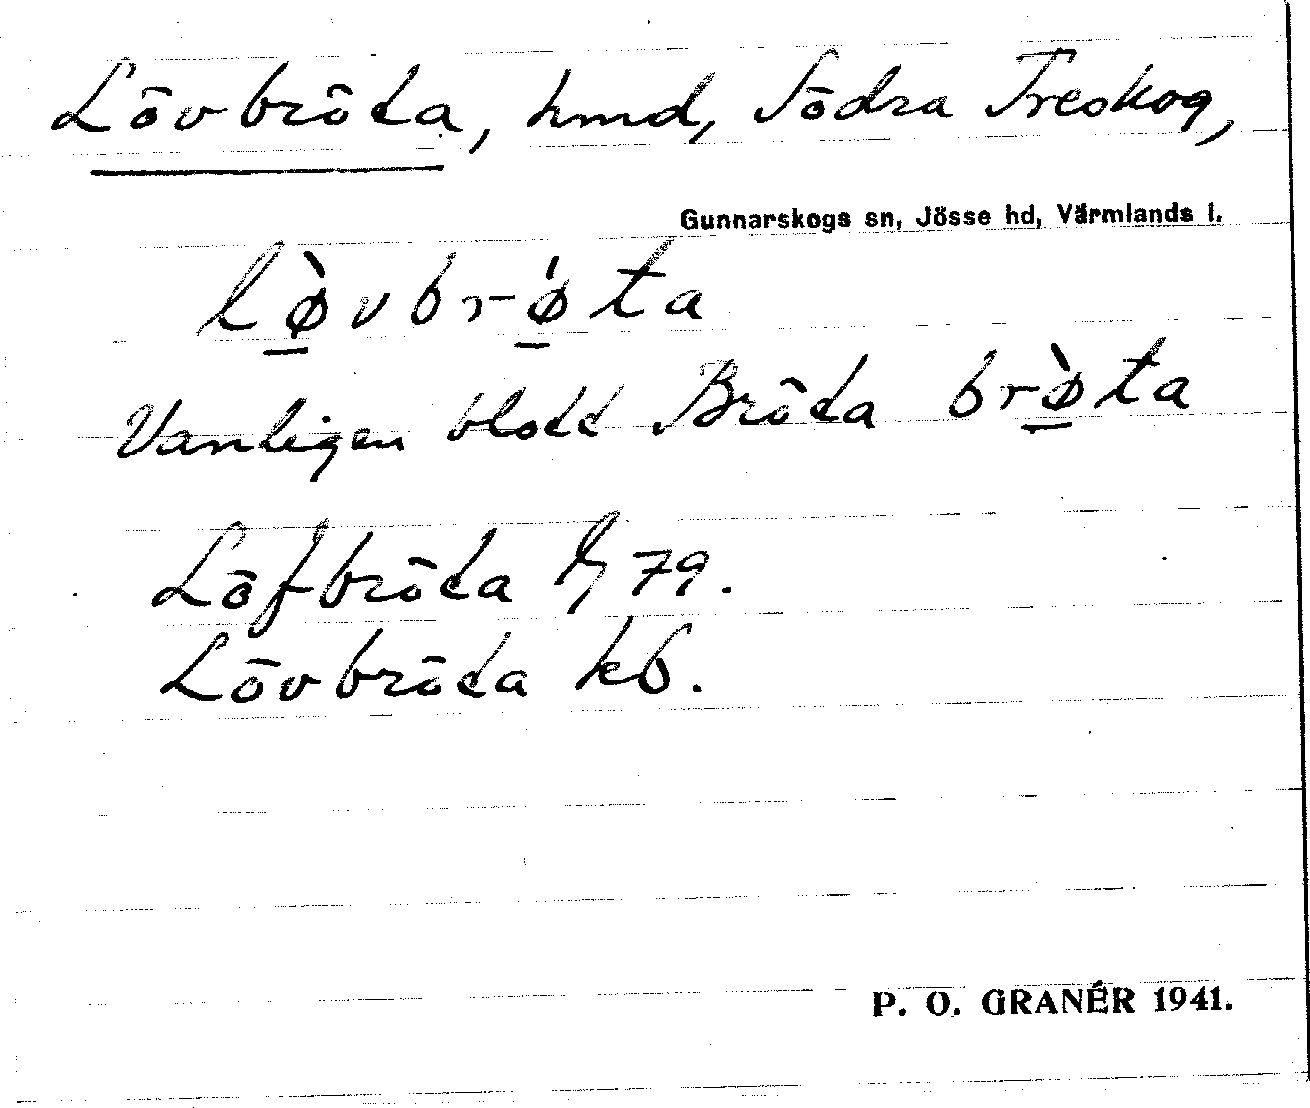 Lövbröta, hmd, Södra Treskog,
Gunnarskogs sn, Jösse hd, Värmlands l.
lø̱̀vbrǿ̱ta
Vanligen blott Bröta brø̱̀ta
Löfbröta 79.
Lövbröta kb.
P. O. GRANÉR 1941.